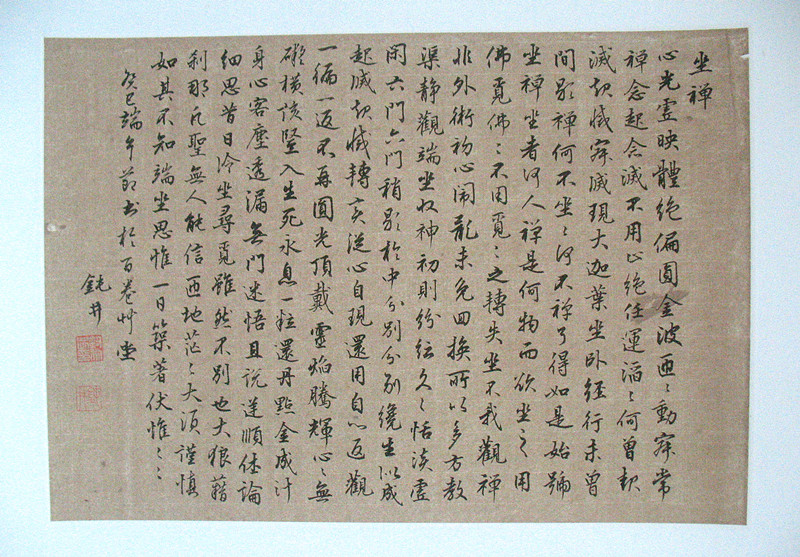 坐禪
心光虛映體絕偏圓金波匝〻動寂常
禪念起念滅不用止絕任運滔〻何曾起
滅起滅寂滅現大迦葉坐臥經行未曾
間歇禪何不坐〻何不禪了得如是始號
坐禪坐者何人禪是何物而欲坐之用
佛覓佛〻不用覓〻之轉失坐不我觀禪
非外術初心鬧亂未免回換所以多方教
渠靜觀端坐收神初則紛紜久〻恬淡虛
閑六門六門稍歇於中分別分別纔生似成
起滅起滅轉變從心自現還用自心返觀
一徧一返不再圓光頂戴靈焰騰輝心〻無
礙橫該豎入生死永息一粒還丹點金成汁
身心客塵透漏無門迷悟且說逆順休論
細思昔日冷坐尋覓雖然不別也大狼藉
刹那凡聖無人能信匝地茫〻大須謹慎
如其不知端坐思惟一日築著伏惟〻〻
癸巳端午節書於百卷艸堂
鈍井